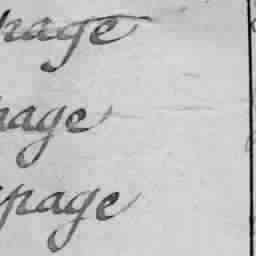 rage
page
page